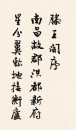 滕王閣序
南昌故郡洪都新府
星分翼軫地接衡廬